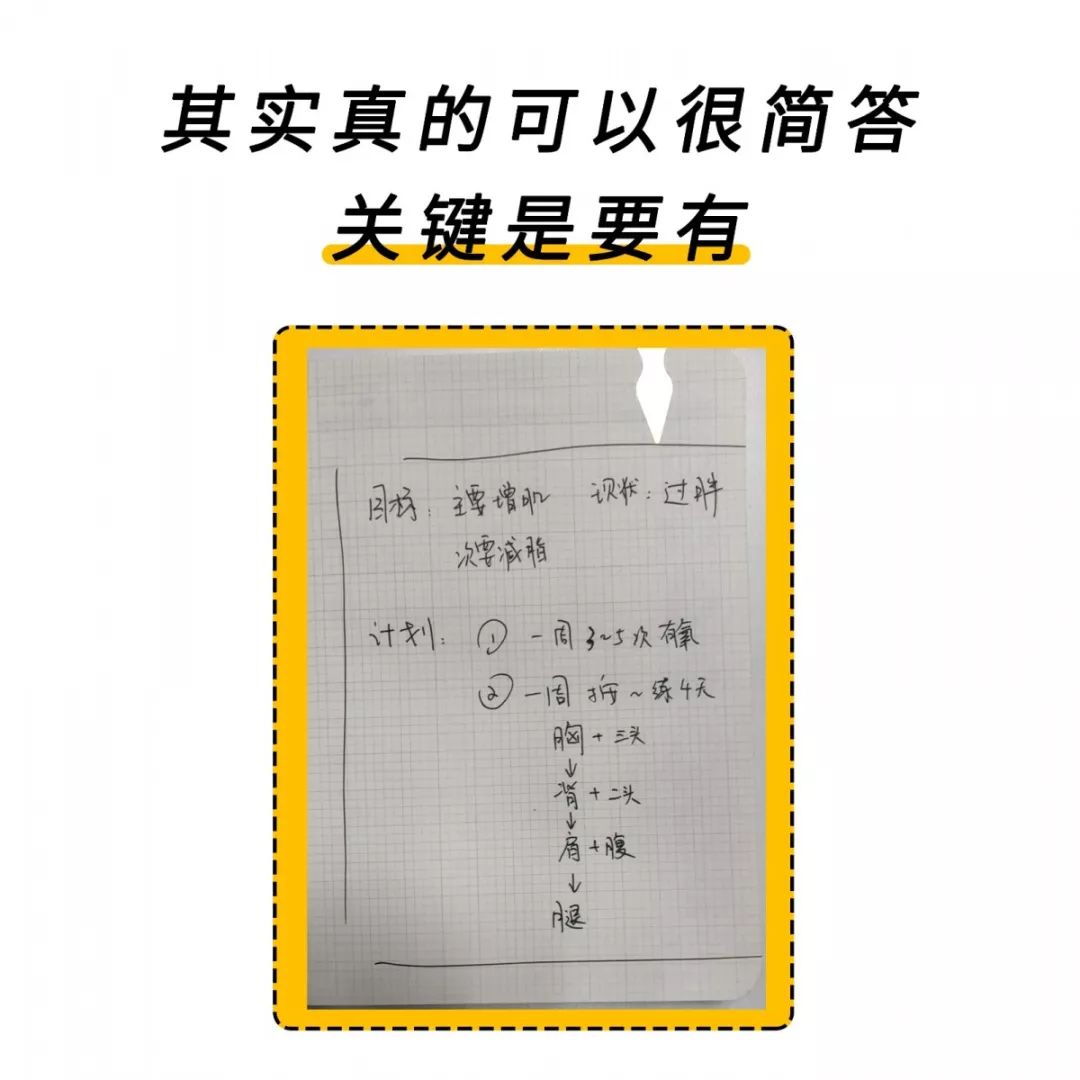 其实真的可以很简答
关键是要有
目标：主要增肌 现状：过胖
次要减脂
计划：① 一周3~5次有氧
② 一周 ~练4天
胸+三头
↓
背+二头
↓
肩+腹
↓
腿